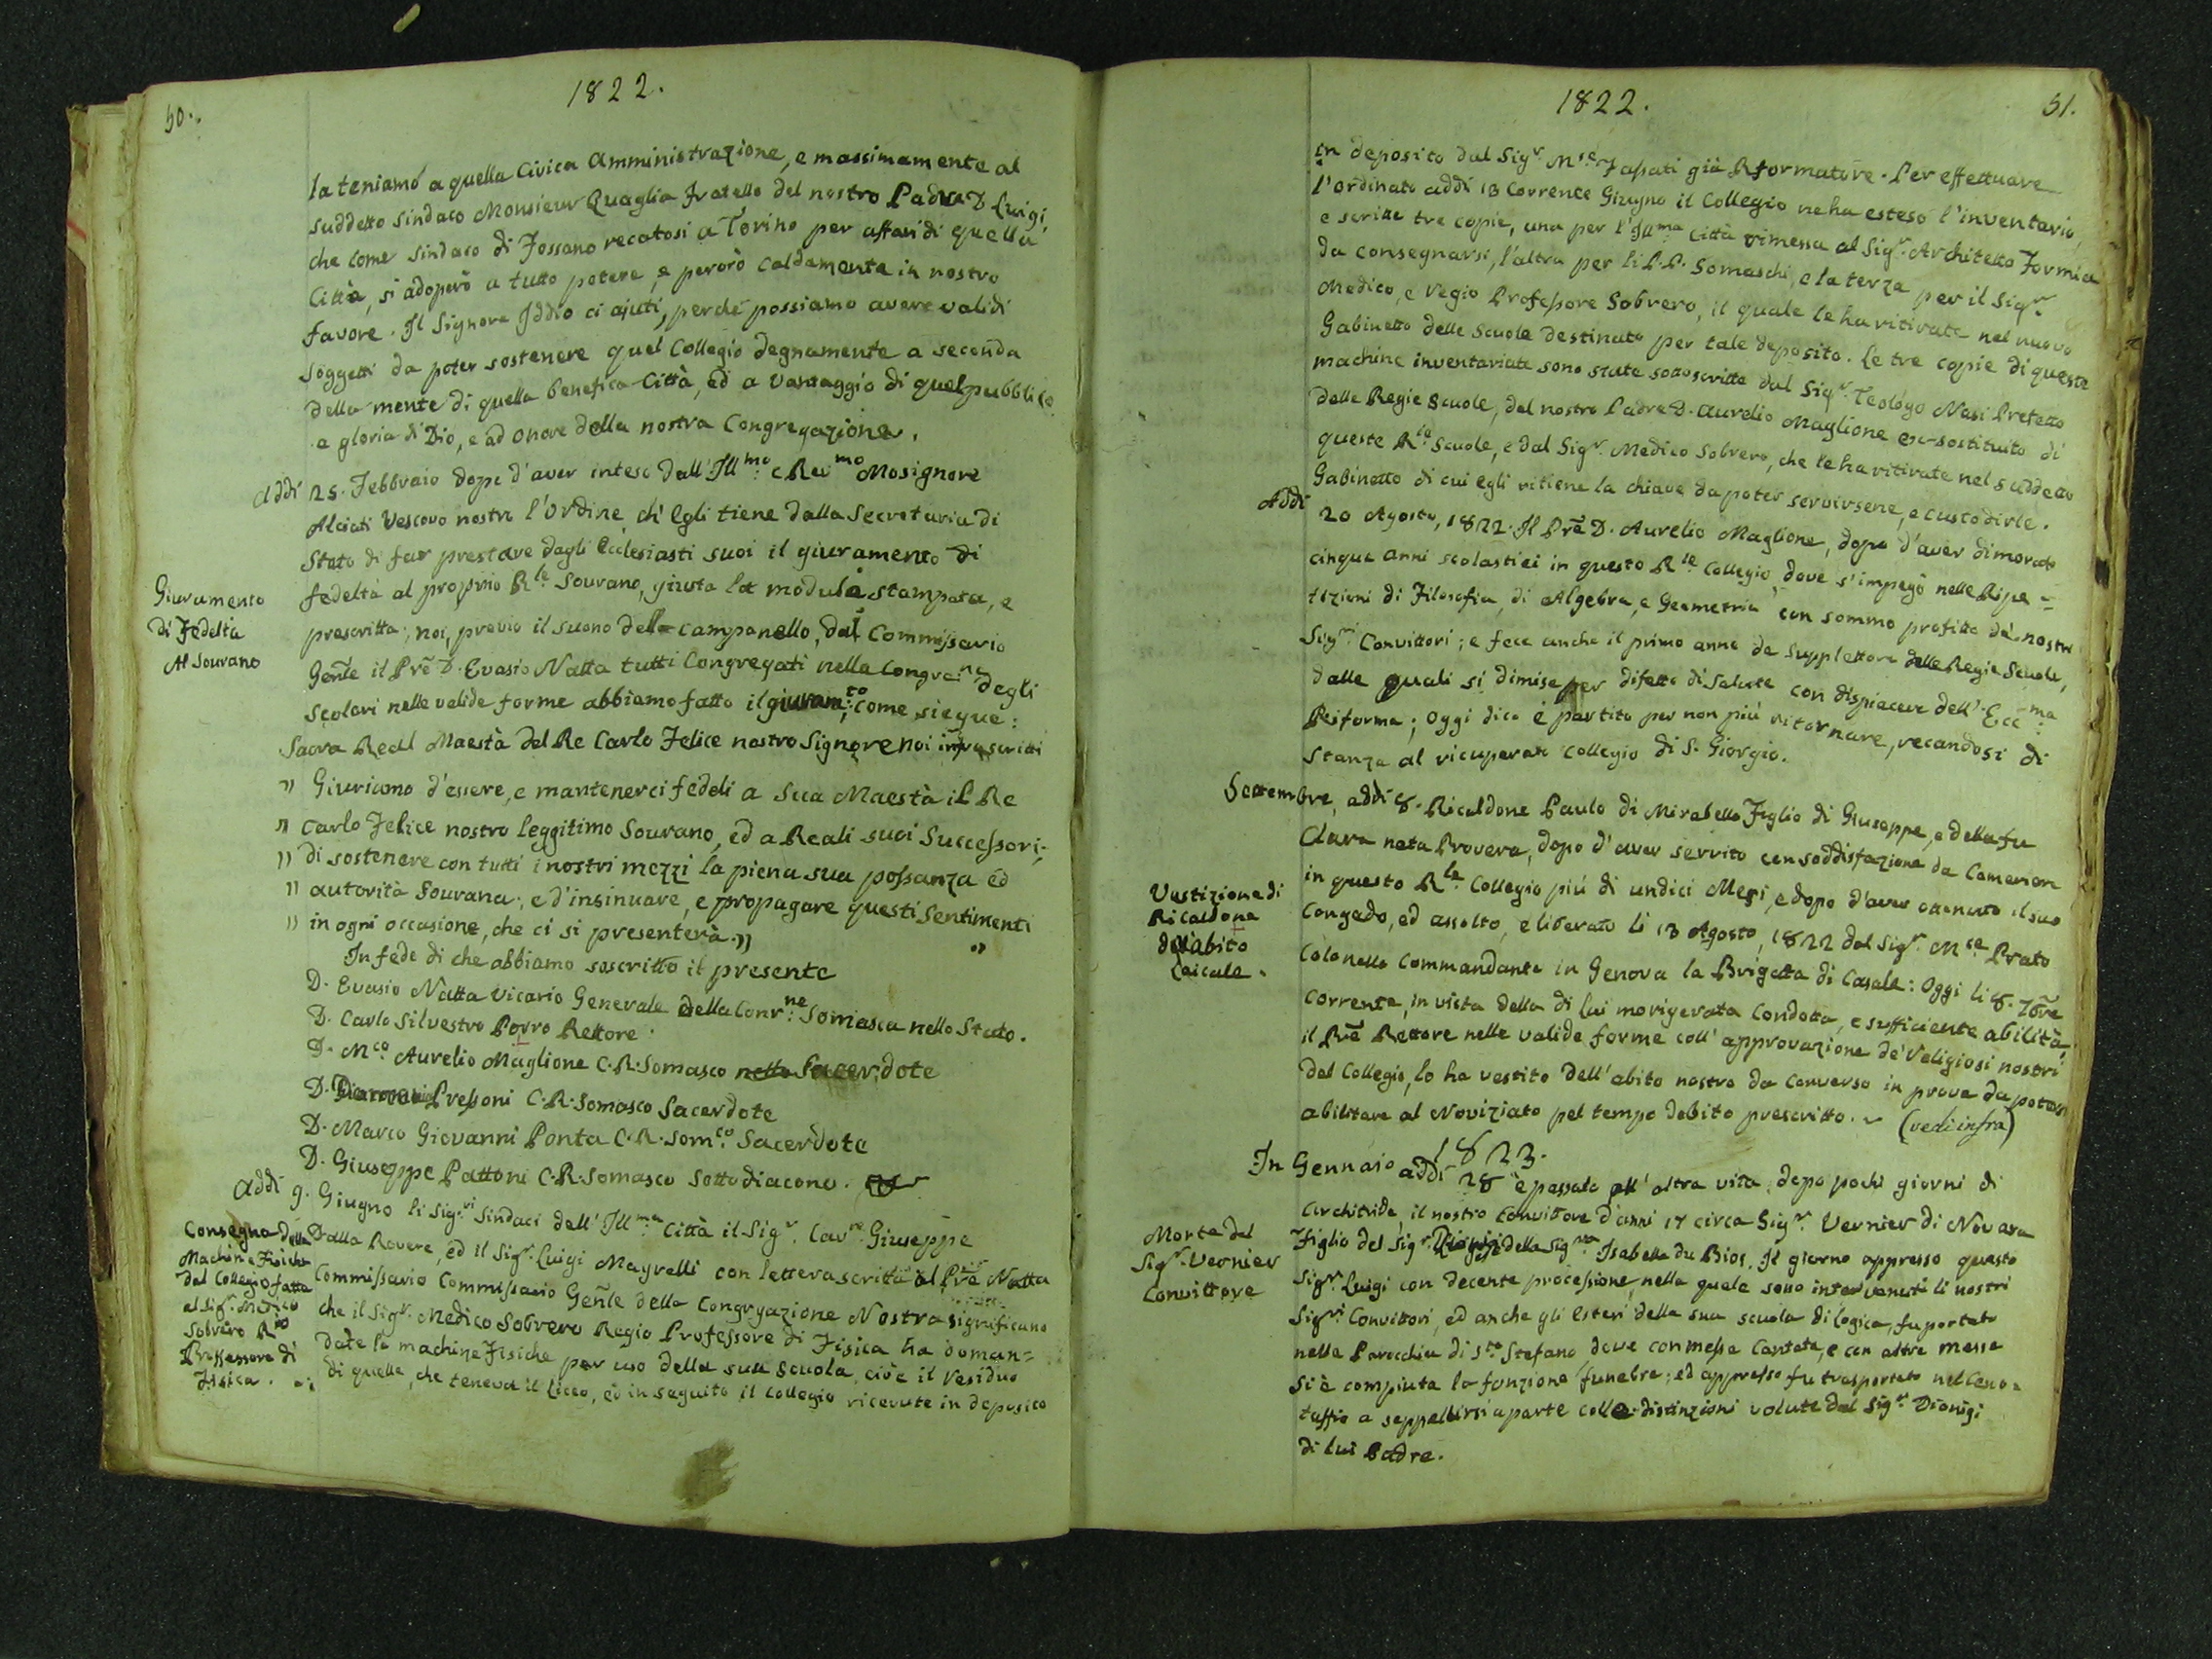 50..
1822.
la teniamo a quella Civica Amministrazione, e massimamente al
suddetto Sindaco Monsieur Quaglia Fratello del nostro Padre D. Luigi,
che come Sindaco di Fossano recatosi a Torino per affari di quella
Città, si adoperò a tutto potere, e perorò caldamente in nostro
favore. Il Signore Iddio ci ajuti, perché possiamo avere validi
soggetti da poter sostenere quel Collegio degnamente a seconda
della mente di quella benefica Città, ed a vantaggio di quel pubblico
a gloria di Dio, e ad onore della nostra Congregazione.
Addì 25. Febbraio dopo d'aver inteso dall'Ill.mo e Rev.mo Mosignore
Alciati Vescovo nostro l'ordine, ch'Egli tiene dalla Secretaria di
Stato di far prestare dagli Ecclesiasti suoi il giuramento di
fedeltà al proprio R.le Sovrano, giusta la modula stampata, e
prescritta; noi, previo il suono del campanello, dal Commissario
Gen̅le il Pr̅e D. Evasio Natta tutti Congregati nella Congre.ne degli
Scolari nelle valide forme abbiamo fatto il giuram.to, come siegue:
Giuramento
di Fedeltà
Al Sovrano
Sacra Real Maestà del Re Carlo Felice nostro Signore noi infrascritti
" Giuriamo d'essere, e mantenerci fedeli a Sua Maestà il Re
" Carlo Felice nostro leggitimo Sovrano, ed a Reali suoi Successori;
" di sostenere con tutti i nostri mezzi la piena sua possanza ed
" autorità Sovrana; e d'insinuare, e propagare questi Sentimenti
" in ogni occasione, che ci si presenterà."
In fede di che abbiamo soscritto il presente "
D. Evasio Natta Vicario Generale della Conr.ne Somasca nello Stato.
D. Carlo Silvestro Porro Rettore.
D. M.co Aurelio Maglione C.R. Somasco nello Sacerdote
D. Pressoni C.R. Somasco Sacerdote
D. Marco Giovanni Ponta C.R. Som.co Sacerdote
D. Giuseppe Pattoni C.R. Somasco Sottodiacono.
Addì 9. Giugno li Sig.ri Sindaci dell'Ill.ma Città il Sig.r Cav.re Giuseppe
Dalla Rovere, ed il Sig.r Luigi Magrelli con lettera scritta al Pr̅e Natta
Commissario Commissario Gen̅le della Congregazione Nostra significano
che il Sig.r Medico Sobrero Regio Professore di Fisica ha doman=
date le machine Fisiche per uso della sua scuola, cioè il residuo
di quelle, che teneva il Liceo, ed in seguito il Collegio ricevute in deposito
Consegna della
Machine Fisiche
dal Collegio fatta
al Sig.r Medico
Sobrero R.o
Professore di
Fisica.
1822.
51.
in deposito dal Sig.r M.se Fassati già Rformatore. Per effettuare
l'ordinato addì 13 Corrente Giugno il Collegio ne ha esteso l'inventario,
e scritte tre copie, una per l'Ill.ma Città rimessa al Sig.r Architetto Formia
da consegnarsi, l'altra per li P.P. Somaschi, e la terza per il Sig.r
Medico, e regio Professore Sobrero, il quale le ha ritirate nel nuovo
Gabinetto delle Scuole destinato per tale deposito. Le tre copie di queste
machine inventariate sono state sottoscritte dal Sig.r Teologo Nasi Prefetto
delle Regie Scuole, dal nostro Padre D. Aurelio Maglione ex-sostituito di
queste R.le Scuole, e dal Sig.r Medico Sobrero, che le ha ritirate nel suddetto
Gabinetto di cui egli ritiene la chiave da poter servirsene, e custodirle.
Addì 20 Agosto, 1822. Il Pr̅e D. Aurelio Maglione, dopo d'aver dimorato
cinque anni scolastici in questo R.le Collegio, dove s'impegò nelle Ripe=
tizioni di Filosofia, di Algebra, e Geometria con sommo profitto de' nostri
Sig.ri Convittori; e fece anche il primo anno da Supplettore delle Regie Scuole,
dalle quali si dimise per difetto di Salute con dispiacere dell'Ecc.ma
Reiforma; oggi dico è partito per non più ritornare, recandosi di
stanza al ricuperato Collegio di S. Giorgio.
Settembre, addì 8. Ricaldone Paulo di Mirabello Figlio di Giuseppe, e della fu
Clara nata Provera, dopo d'aver servito con soddisfazione da Cameriere
in questo R.le Collegio più di undici Mesi, e dopo d'aver ottenuto il suo
Congedo, ed assolto, e liberato li 13 Agosto, 1822 dal Sig.r M.se Prato
Colonello Commandante in Genova la Brigatta di Casale: Oggi li 8. 7br̅e
corrente, in vista della di lui morigerata Condotta, e sufficiente abilità,
il Pr̅e Rettore nelle valide forme coll'approvazione de' religiosi nostri
del Collegio, lo ha vestito dell'abito nostro da Converso in prova da potersi
abilitare al Noviziato pel tempo debito prescritto. (vedi infra)
Vestizione di
Ricaldone
dell'abito
Laicale.
1823.
In Gennaio addì 28 è passato all'altra vita, dopo pochi giorni di
Architride, il nostro Convittore d'anni 17 circa Sig.r Vernier di Novara
Figlio del Sig.r Dionigi e della Sig.ra Isabella du Bios. Il giorno appresso questo
Sig.r Luigi con decente processione, nella quale sono intervenuti li nostri
Sig.ri Convittori, ed anche gli Esteri della sua scuola di Logica, fu portato
nella Parocchia di S.to Stefano dove con messa Cantata, e con altre messe
si è compiuta la funzione funebre; ed appresso fu trasportato nel Ceno=
taffio a seppellirsi a parte colle distinzioni volute dal Sig.r Dionigi
di lui Padre.
Morte del
Sig.r Vernier
Convittore